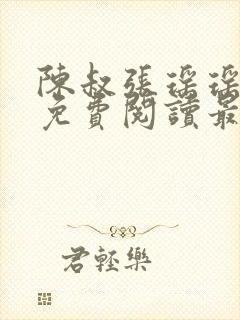 陳叔張瑤瑤
免費閱讀最
君輕樂